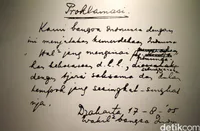 Proklamasi
Kami bangsa Indonesia dengan
ini menjatakan kemerdekaan Indonesia.
Hal² jang mengenai
kekoeasaan d.l.l.,
dengan tjara saksama dan dalam
tempoh jang sesingkat-singkat-
nja.
Djakarta 17-8-'05
Wakil² bangsa Indonesia
detikcom